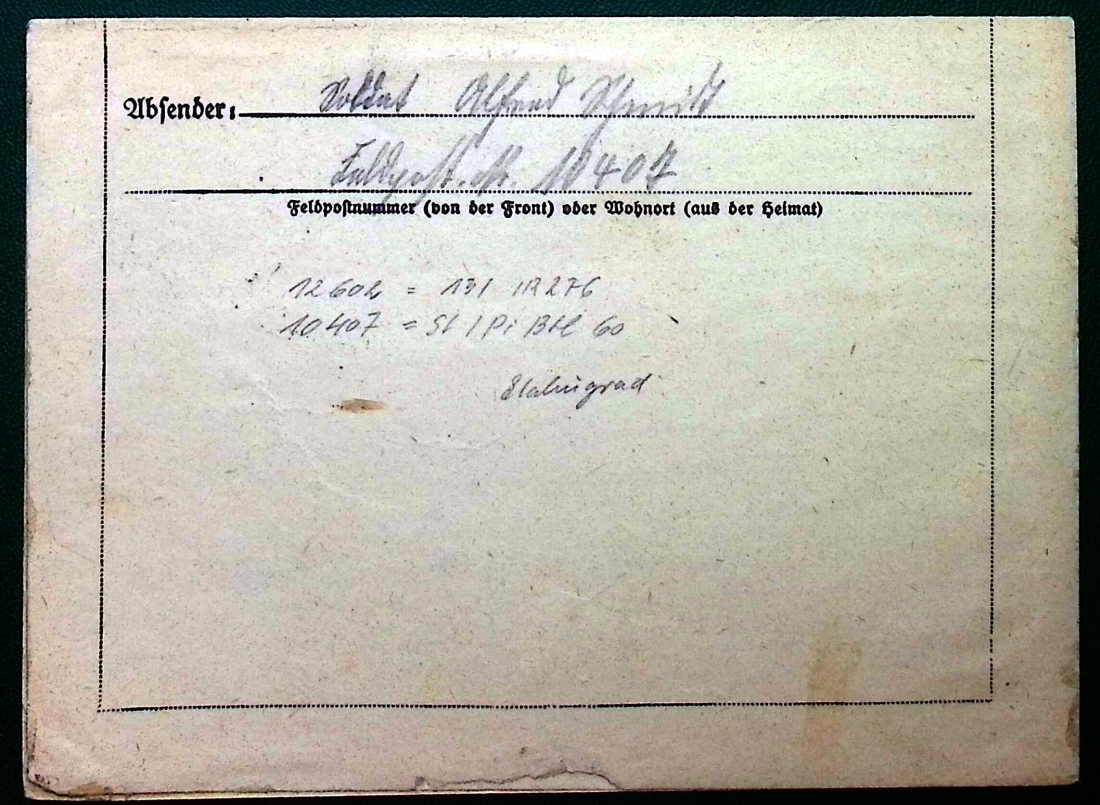 Absender: Soldat Alfred Schmidt
Feldpost. Nr. 10407
Feldpostnummer (von der Front) oder Wohnort (aus der Heimat)
12602 = 13/ IR 276
10407 = St / Pi Btl 60
Stalingrad